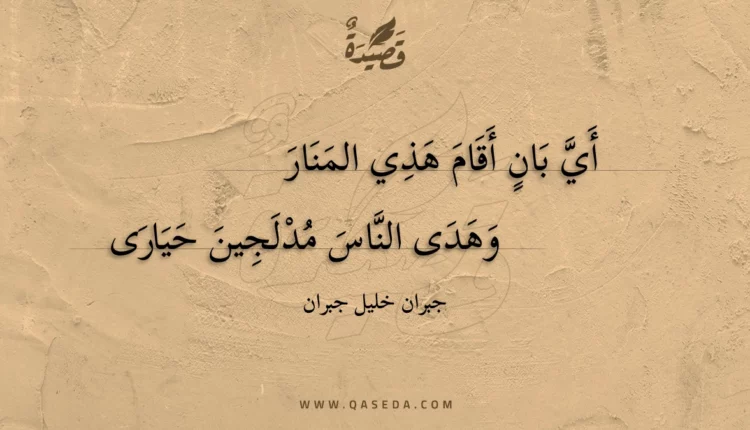 قَصِيدَةٌ
أَيَّ بَانٍ أَقَامَ هَذِي المَنَارَ
وَهَدَى النَّاسَ مُدْلَجِينَ حَيَارَى
جبران خليل جبران
WWW.QASEDA.COM